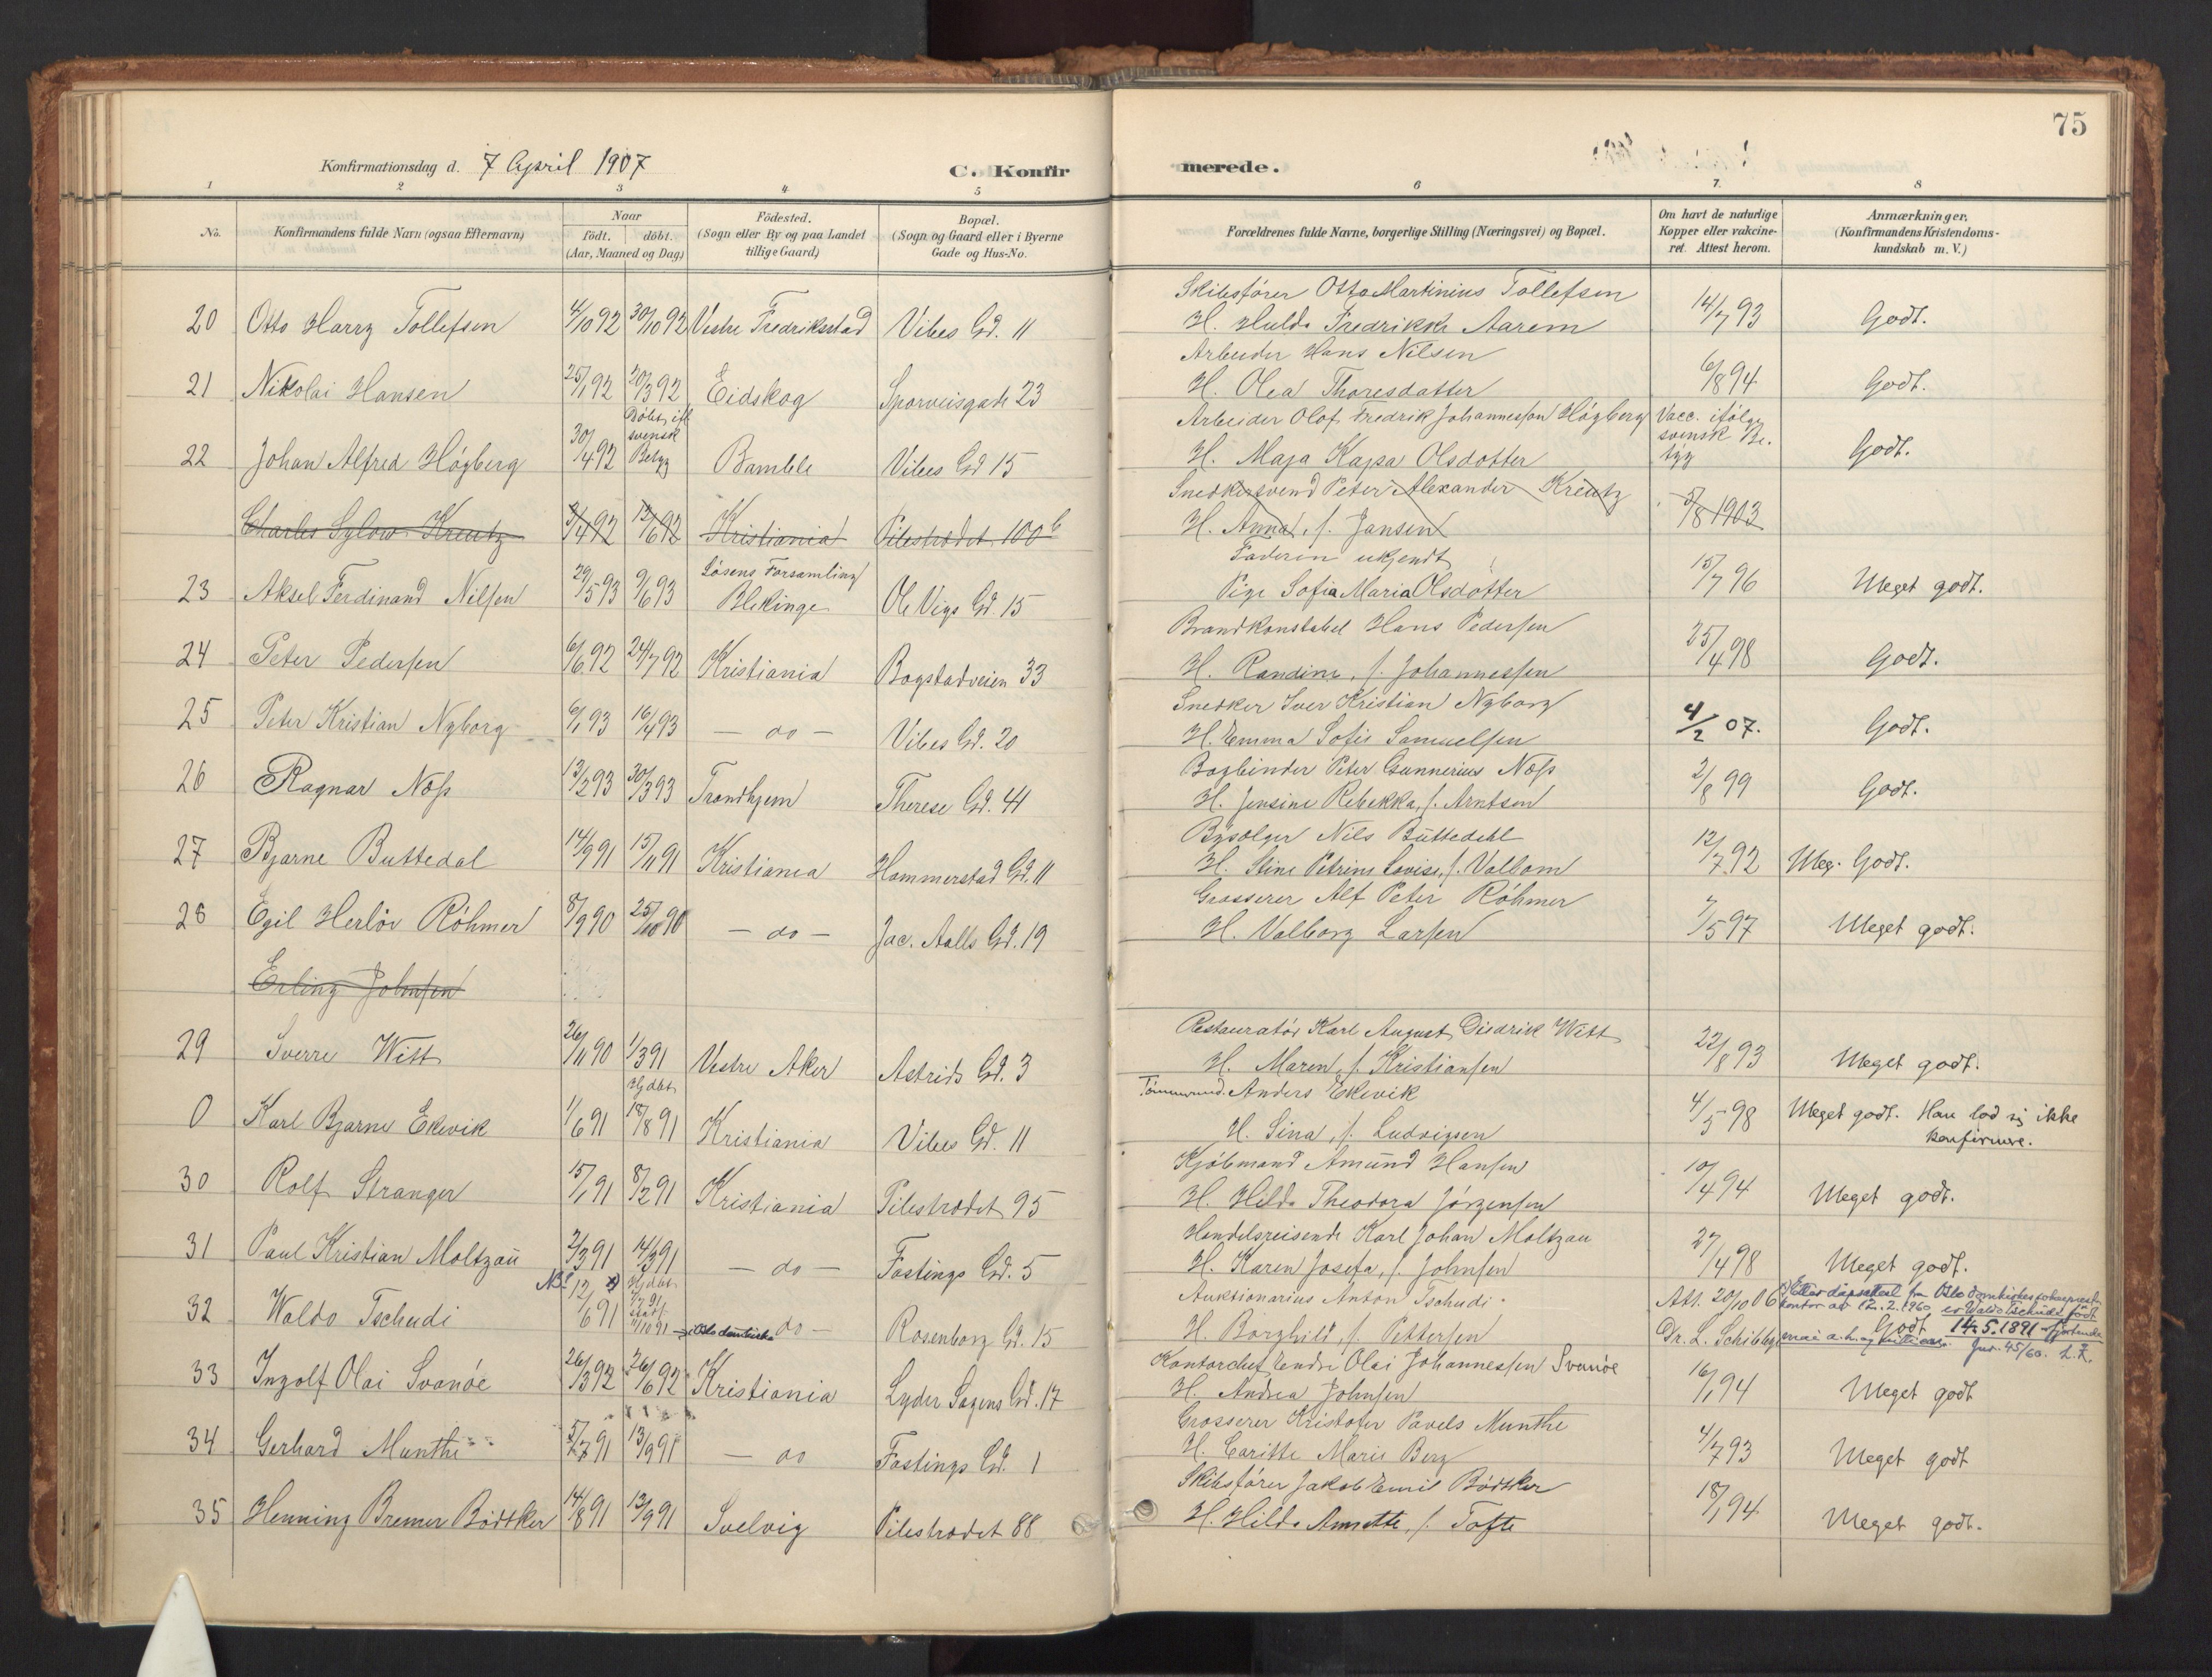 75
Konfirmationsdag d. 7 April 1907
C. Konfirmerede.
1 2 3 4 5 6 7. 8
No.
Konfirmandens fulde Navn (ogsaa Efternavn)
Naar
födt. döbt.
(Aar, Maaned og Dag)
Födested.
(Sogn eller By og paa Landet
tillige Gaard)
Bopæl.
(Sogn og Gaard eller i Byerne
Gade og Hus-No.
Forældrenes fulde Navne, borgerlige Stilling (Næringsvei) og Bopæl.
Om havt de naturlige
Kopper eller vakcine-
ret. Attest herom.
Anmærkninger.
(Konfirmandens Kristendoms-
kundskab m. V.)
Skibsfører Otto Martinius Tollefsen
20 Otto Harry Tollefsen 4/10 92 30/10 92 Vestre Fredriksstad Vibes Gd. 11 H. Hulda Fredrikke Aarem 14/7 93 Godt.
Arbeider Hans Nilsen
21 Nikolai Hansen 25/1 92 20/3 92 Eidskog Sporveisgade 23 H. Olea Thoresdatter 6/8 94 Godt.
Døbt ifl. svensk Betyg
Arbeider Olof Fredrik Johannesson Högberg Vacc. ifølge svensk Be-
22 Johan Alfred Högberg 30/4 92 Bamble Vibes Gd 15 H. Maja Kajsa Olsdotter tyg Godt.
Snedkersvend Peter Alexander Kreutz
Charles Sylow Kreutz 3/4 92 12/6 92 Kristiania Pilestrædet 100b H. Anna, f. Jansen 5/8 1903
Løsens Forsamling Faderen ukjendt
23 Aksel Ferdinand Nilsen 29/5 93 9/6 93 Blekinge Ole Vigs Gd 15 Pige Sofia Maria Olsdotter 15/7 96 Meget godt.
Brandkonstabel Hans Pedersen
24 Peter Pedersen 6/6 92 24/7 92 Kristiania Bogstadveien 33 H. Randine, f. Johannessen 25/4 98 Godt.
Snedker Iver Kristian Nyborg
25 Peter Kristian Nyborg 6/1 93 16/4 93 - do - Vibes Gd. 20 H. Emma Sofie Samuelsen 4/2 07. Godt.
Bogbinder Peter Gunnerius Næss
26 Ragnar Næss 13/2 93 30/3 93 Trondhjem Therese Gd. 41 H. Jensine Rebekka, f. Arntsen 2/8 99 Godt.
Nils Büttedahl
27 Bjarne Buttedal 14/9 91 15/11 91 Kristiania Hammerstad Gd. 11 H. Stine Petrine Lovise, f. Valbom 12/7 92 Meg. Godt.
Grosserer Alf Peter Röhmer
28 Egil Herløv Röhmer 8/9 90 25/10 90 - do - Jac. Aalls Gd. 19 H. Valborg Larsen 7/5 97 Meget godt.
Erling Johnsen
Restauratør Karl August Diedrik Witt
29 Sverre Witt 26/11 90 1/3 91 Vestre Aker Astrids Gd. 3 H. Maren, f. Kristiansen 22/8 93 Meget godt.
Hj døbt
Tømmermd. Anders Ekevik
0 Karl Bjarne Ekevik 1/6 91 18/8 91 Kristiania Vibes Gd. 11 H. Sina, f. Ludvigsen 4/5 98 Meget godt. Han lod sig ikke konfirmere.
Kjøbmand Amund Hansen
30 Rolf Stranger 15/1 91 8/2 91 Kristiania Pilestrædet 95 H. Hilda Theodora Jörgensen 10/4 94 Meget godt.
Handelsreisende Karl Johan Moltzau
31 Paul Kristian Moltzau 2/3 91 14/3 91 - do - Fastings Gd. 5 H. Karen Josefa, f. Johnsen 27/4 98 Meget godt.
NB! x) Hj døbt
Auktionarius Anton Tschudi Att. 20/10 06 x) Etter dåpsattest fra Oslo domkirkes sokneprest-
kontor av 12.2.1960 er Waldo Tschudi født
14.5.1891 - fjortende
mai a.h. Jnr. 45/60.
32 Waldo Tschudi 12/6 91 Oslo domkirke - do - Rosenborg Gd. 15 H. Borghild, f. Pettersen Dr. L. Schibbye Godt
Kontorchef Endre Olai Johannessen Svanøe
33 Ingolf Olai Svanöe 26/3 92 26/6 92 Kristiania Lyder Sagens Gd. 17 H. Andrea Johnsen 16/1 94 Meget godt
Grosserer Kristofer Pavels Munthe
34 Gerhard Munthe 5/7 91 13/9 91 - do Fastings Gd. 1 H. Caritte Marie Berg 4/7 93 Meget godt
Skibsfører Jakob Emil Bödtker
35 Henning Bremer Bödtker 14/8 91 13/9 91 Svelvig Pilestrædet 88 H. Hilda Annette, f. Tofte 18/1 94 Meget godt.